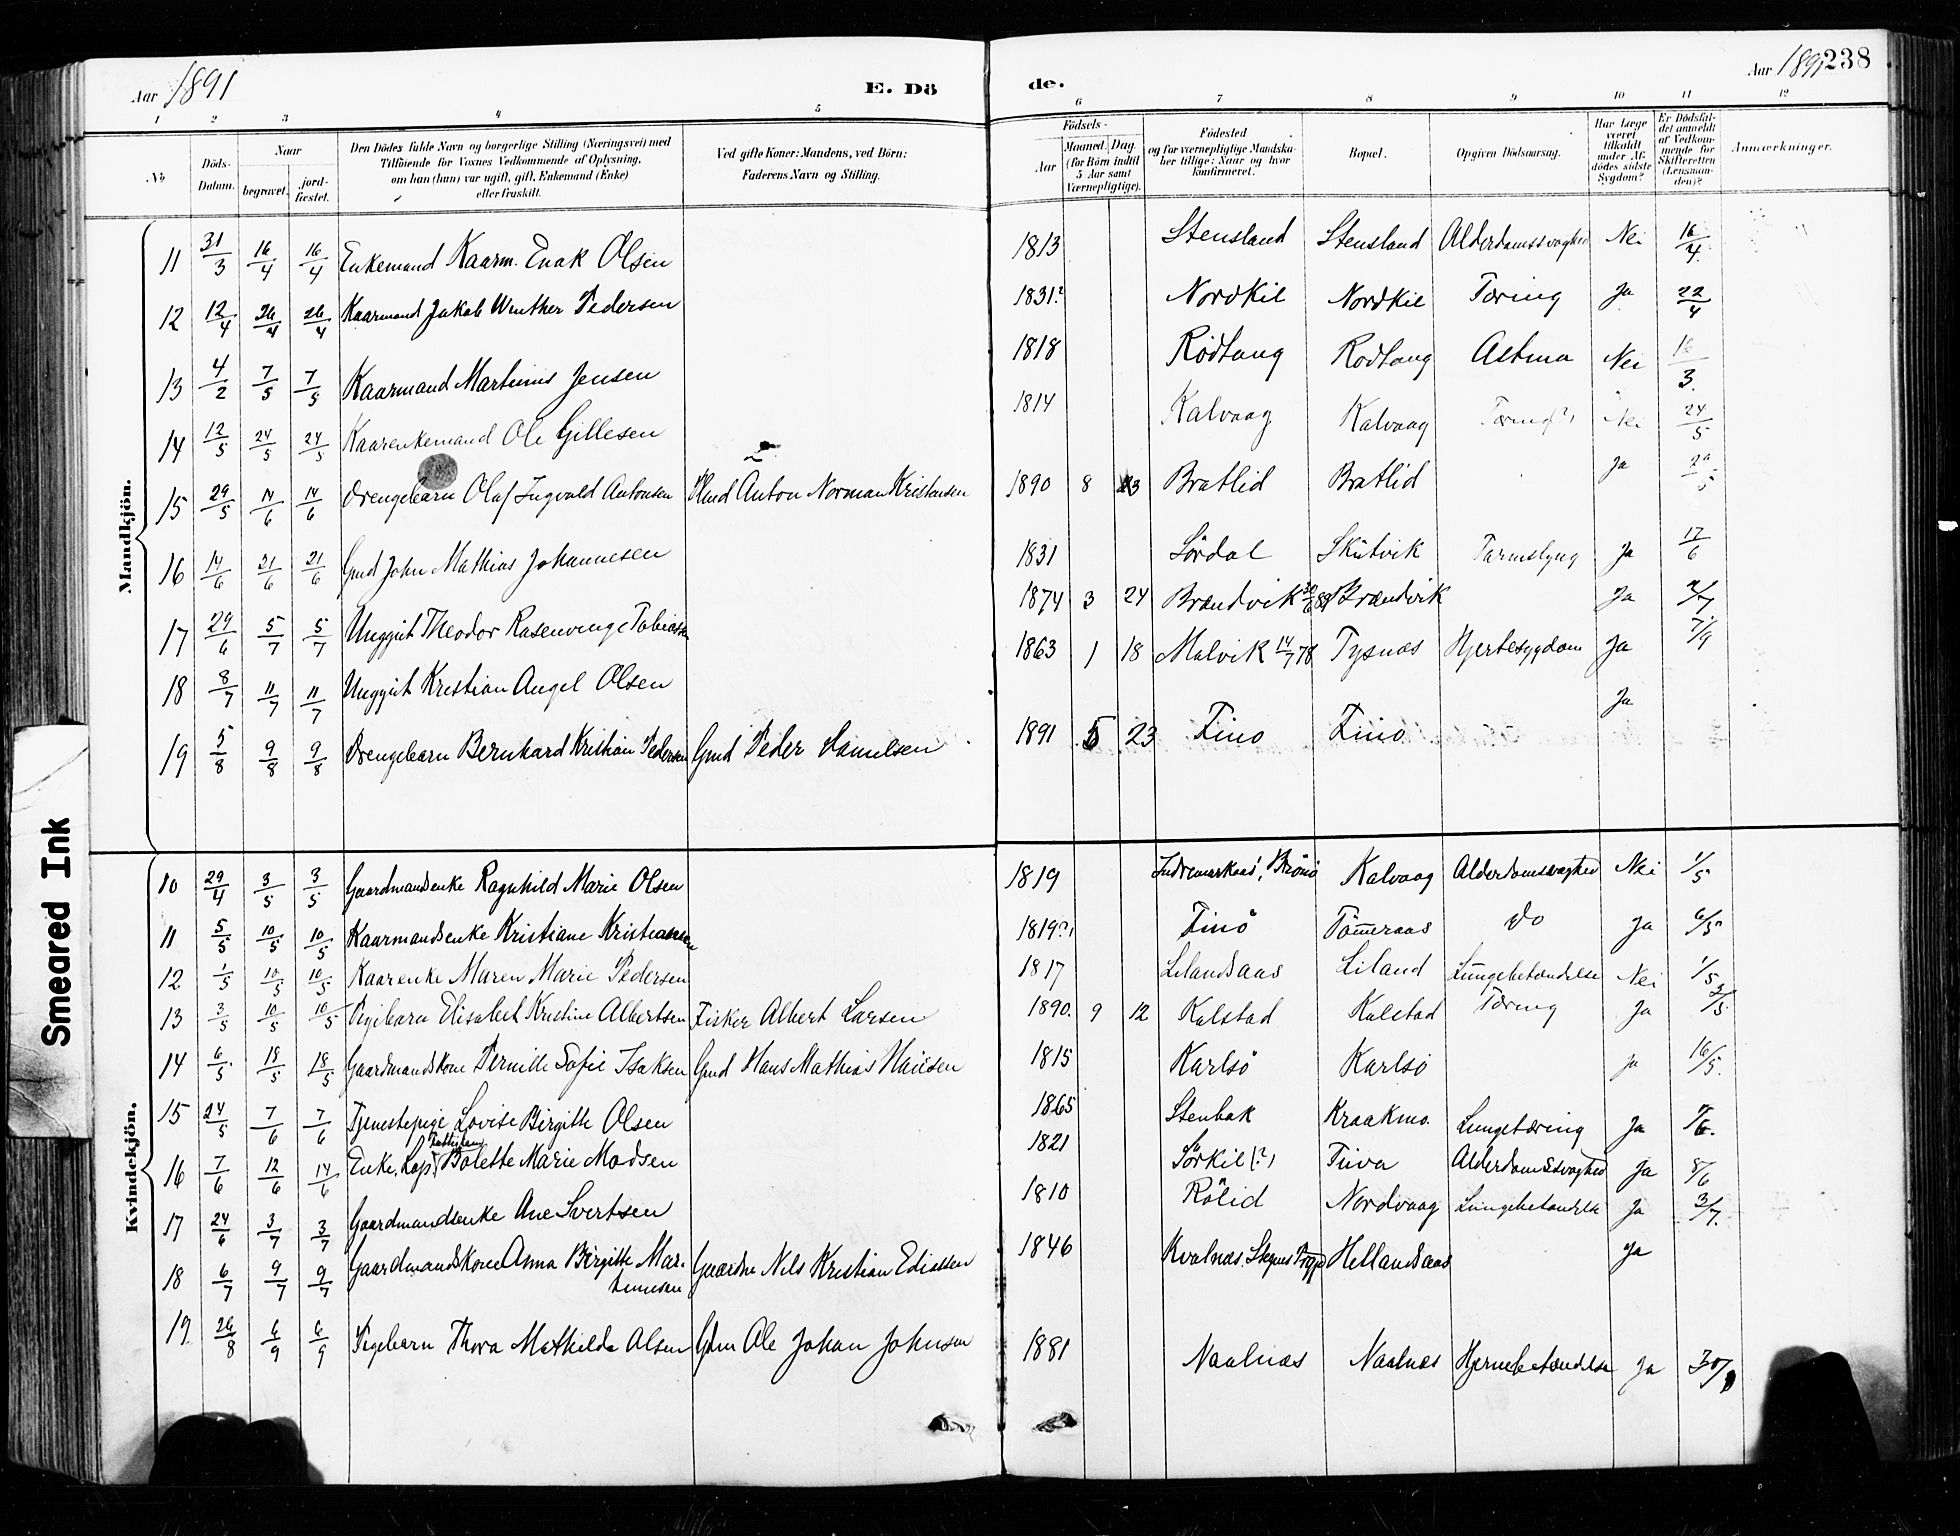 Aar 1891
E. Dö
de.
Aar 1891 238
1 2 3 4 5 6 7 8 9 10 11 12
No
Döds-Datum.
Naar
begravet.
jord-fæstet.
Den Dödes fulde Navn og borgerlige Stilling (Næringsvei) med
Tilföiende för Voxnes Vedkommende af Oplysning,
om han (hun) var ugift, gift, Enkemand (Enke)
eller fraskilt.
Ved gifte Koner: Mandens, ved Börn:
Faderens Navn og Stilling.
Födsels-
Aar
Maaned. Dag.
(for Börn indtil
5 Aar samt
Værnepligtige).
Födested
og for værnepligtige Mandska-
ber tillige: Naar og hvor
konfirmeret.
Bopæl.
Opgiven Dödsaarsag.
Har Læge
været
tilkaldt
under Af-
dödes sidste
Sygdom?
Er Dödsfal-
det anmeldt
af Vedkom-
mende for
Skifteretten
(Lensman-
den)?
Anmærkninger.
Mandkjön.
11 31/3 16/4 16/4 Enkemand Kaarm. Enok Olsen 1813 Stensland Stensland Alderdomssvaghed Nei 16/4
12 12/4 26/4 26/4 Kaarmand Jakob Winther Pedersen 1831? Nordkil Nordkil Tæring Ja 22/4
13 4/2 7/5 7/5 Kaarmand Martinus Jensen 1818 Rødtang Rodtang Astma Nei /3
14 12/5 24/5 24/5 Kaarenkemand Ole Gillesen 1814 Kalvaag Kalvaag Tæring(?) Nei 24/5
15 29/5 14/6 14/6 Drengebarn Olaf Ingvald Antonsen Anton Norman Kristensen 1890 8 Bratlid Bratlid Ja 29/5
16 14/6 21/6 21/6 Gmd John Mathias Johannesen 1831 Sördal Skutvik Tarmslyng Ja 17/6
17 29/6 5/7 5/7 Unggut Theodor Rosenvinge Tobiassen 1874 3 24 Brændvik Brændvik Ja 2/7
18 8/7 11/7 11/7 Unggut Kristian Angel Olsen 1863 1 18 Malvik 14/7 78 Tysnæs Hjertesygdom Ja
Ja
19 5/8 9/8 9/8 Drengebarn Bernhard Kristian Pedersen Gmd Peder Samelsen 1891 5 23 Finö Finö
Kvindekjön.
10 29/4 3/5 3/5 Gaardmandsenke Ragnhild Marie Olsen 1819 Brönö Kalvaag Alderdomssvaghed Nei 1/5
11 5/5 10/5 10/5 Kaarmandsenke Kristiane Kristiansen 1819?, Finö Tömeraas do Ja 6/5
12 1/5 10/5 10/5 Kaarenke Maren Marie Pedersen 1817 Lilandsaas Liland Lungebetændelse Nei 1/5
13 3/5 10/5 10/5 Pigebarn Elisabet Kristine Albertsen Fisker Albert Larsen 1890. 9 12 Kalstad Kalstad Tæring Ja 3/5
14 6/5 18/5 18/5 Gaardmandskone Pernille Sofie Isaksen Gmd Hans Mathias Hansen 1815 Karlsö Karlsö Ja 16/5
15 24/5 7/6 7/6 Tjenestepige Lovise Birgitte Olsen 1865 Stenbak Kraakmo. Lungetæring Ja
16 7/6 12/6 14/6 Enke, Lap, Bolette Marie Madsen 1821 Sörkil (?) Tiiva Alderdomssvaghed Ja 8/6
17 24/6 3/7 3/7 Gaardmandsenke Ane Svertsen 1810 Rölid Nordvaag Lungebetændelse Ja 3/7
18 6/7 9/7 9/7 Gaardmandskone Anna Birgitte Mar-
tinusen Nils Kristian Ediassen 1846 Kvalnæs, Hellandsaas Ja
19 26/8 6/9 6/9 Pigebarn Thora Mathilde Olsen Gdm Ole Johan Johnsen 1881 Naalnæs Naalnæs Hjernebetændelse Ja
Sneared Ink